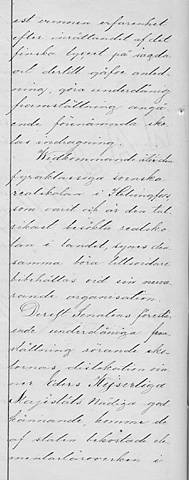 est vunnen erfarenhet
efter inrättandet af det
finska lyceet på
och dertill gifva anled
ning, göra underdånig
framställning angå
ende förenämnda sko
las indragning.
Vidkommande
fyraklassiga svenska
realskolan i Helsingfors
som varit och är den tal
rikast besökta realsko
lan i landet, synes den
samma böra tillsvidare
bibehållas vid sin nuva
rande organisation.
Derest Senatens föreslå
ende underdåniga fram
ställning rörande sko
lornas
ner Eders Kejserliga
Majestäts Nådiga god
kännande, komme de
af staten bekostade ele
mentarläroverken i